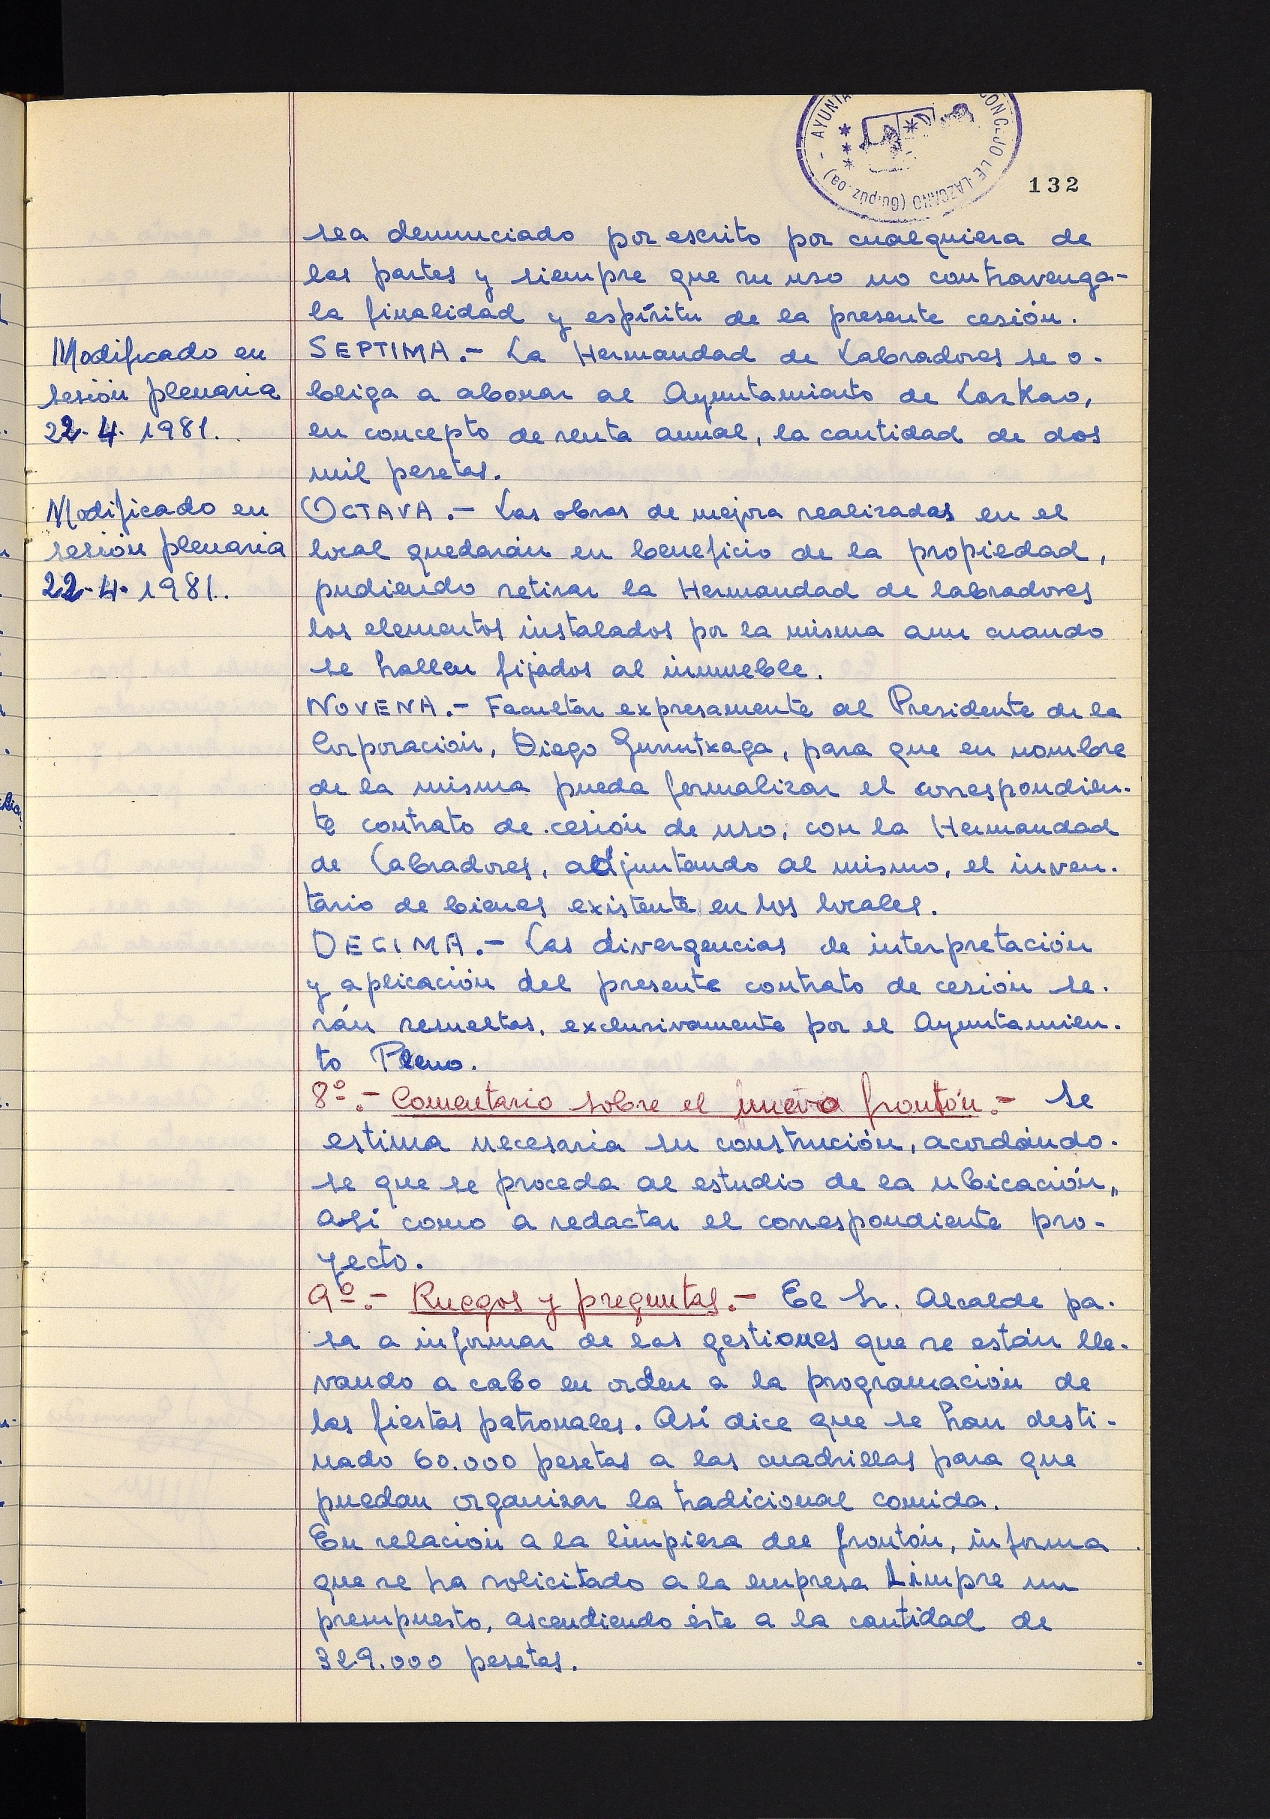 132
sea denunciado por escrito por cualquiera de
las partes y siempre que su uso no contravenga-
la finalidad y espíritu de la presente cesión.
Modificado en
sesión plenaria
22-4-1981.
SEPTIMA.- La Hermandad de Labradores se o-
bliga a abonar al Ayuntamiento de Lazkao,
en concepto de renta anual, la cantidad de dos
mil pesetas.
Modificado en
sesión plenaria
22-4-1981.
OCTAVA.- Las obras de mejora realizadas en el
local quedarán en beneficio de la propiedad,
pudiendo retirar la Hermandad de labradores
los elementos instalados por la misma aun cuando
se hallen fijados al inmueble.
NOVENA.- Facultar expresamente al Presidente de la
Corporación, Diego Gurrutxaga, para que en nombre
de la misma pueda formalizar el correspondien-
te contrato de cesión de uso, con la Hermandad
de Labradores, adjuntando al mismo, el inven-
tario de bienes existente en los locales.
DECIMA.- Las divergencias de interpretación
y aplicación del presente contrato de cesión se-
rán resueltas, exclusivamente por el Ayuntamien-
to Pleno.
8º.- Comentario sobre el nuevo frontón.- Se
estima necesaria su construción, acordándo-
se que se proceda al estudio de la ubicación,,
así como a redactar el correspondiente pro-
yecto.
9º.- Ruegos y preguntas.- El Sr. Alcalde pa-
sa a informar de las gestiones que se están lle-
vando a cabo en orden a la programación de
las fiestas patronales. Así dice que se han desti-
nado 60.000 pesetas a las cuadrillas para que
puedan organizar la tradicional comida.
En relación a la limpieza del frontón, informa
que se ha solicitado a la empresa Limpre un
presupuesto, ascendiendo éste a la cantidad de
329.000 pesetas.